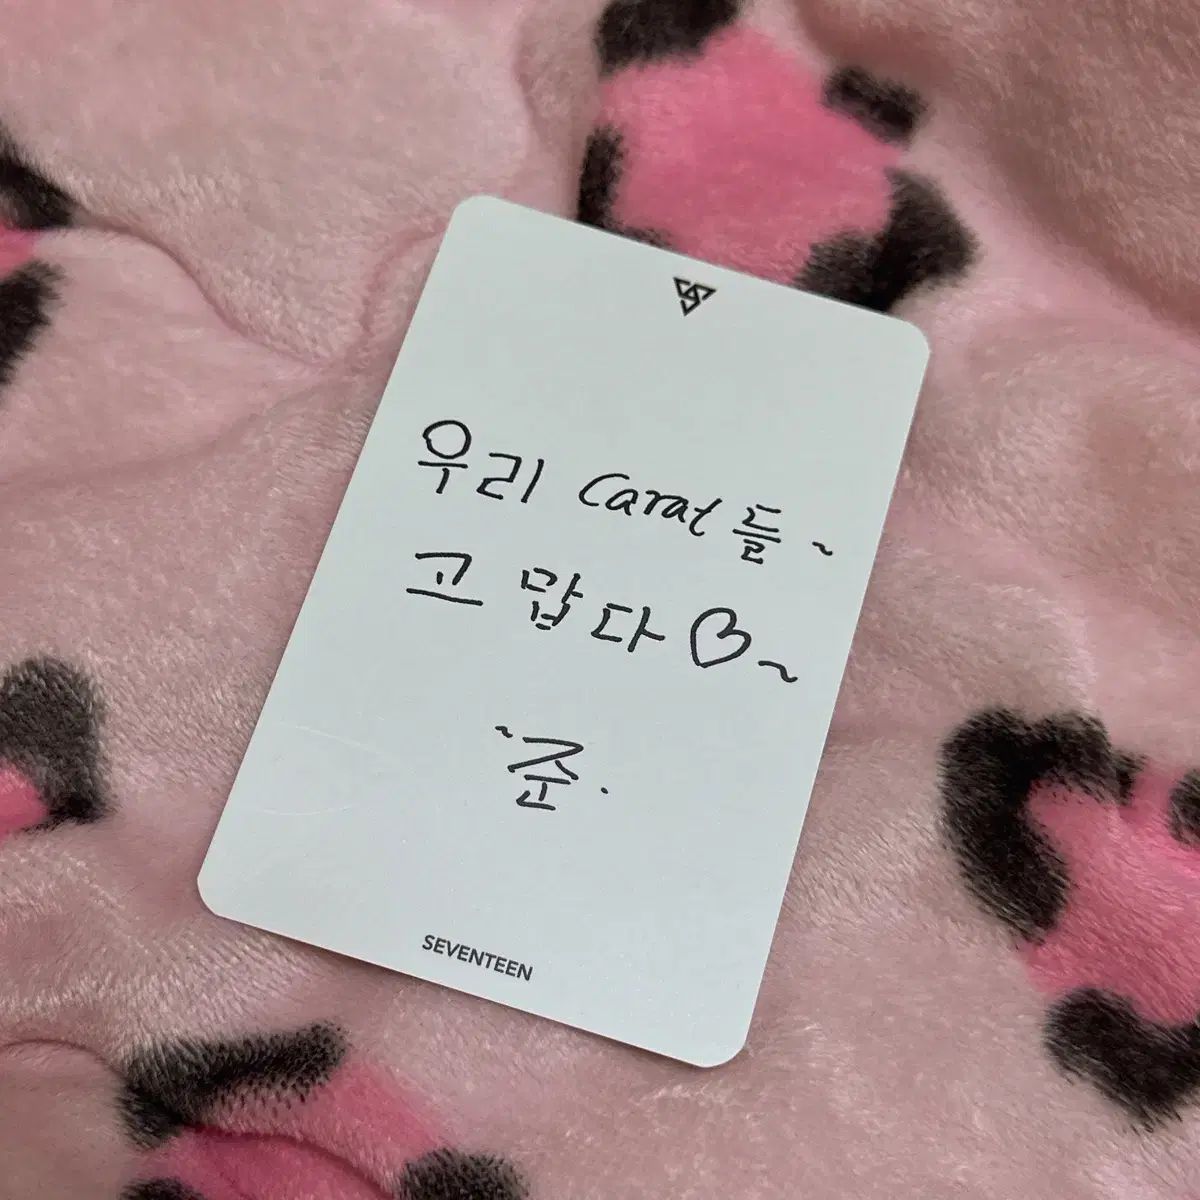 우리 Carat들~
고맙다♡~
~준.
SEVENTEEN